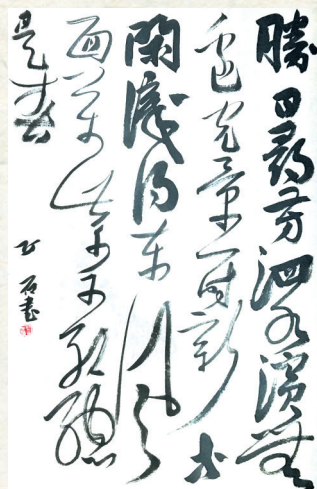 勝日尋芳泗水濱無
邊光景一時新等
閑識得東風
面萬紫千紅總
是春
石書